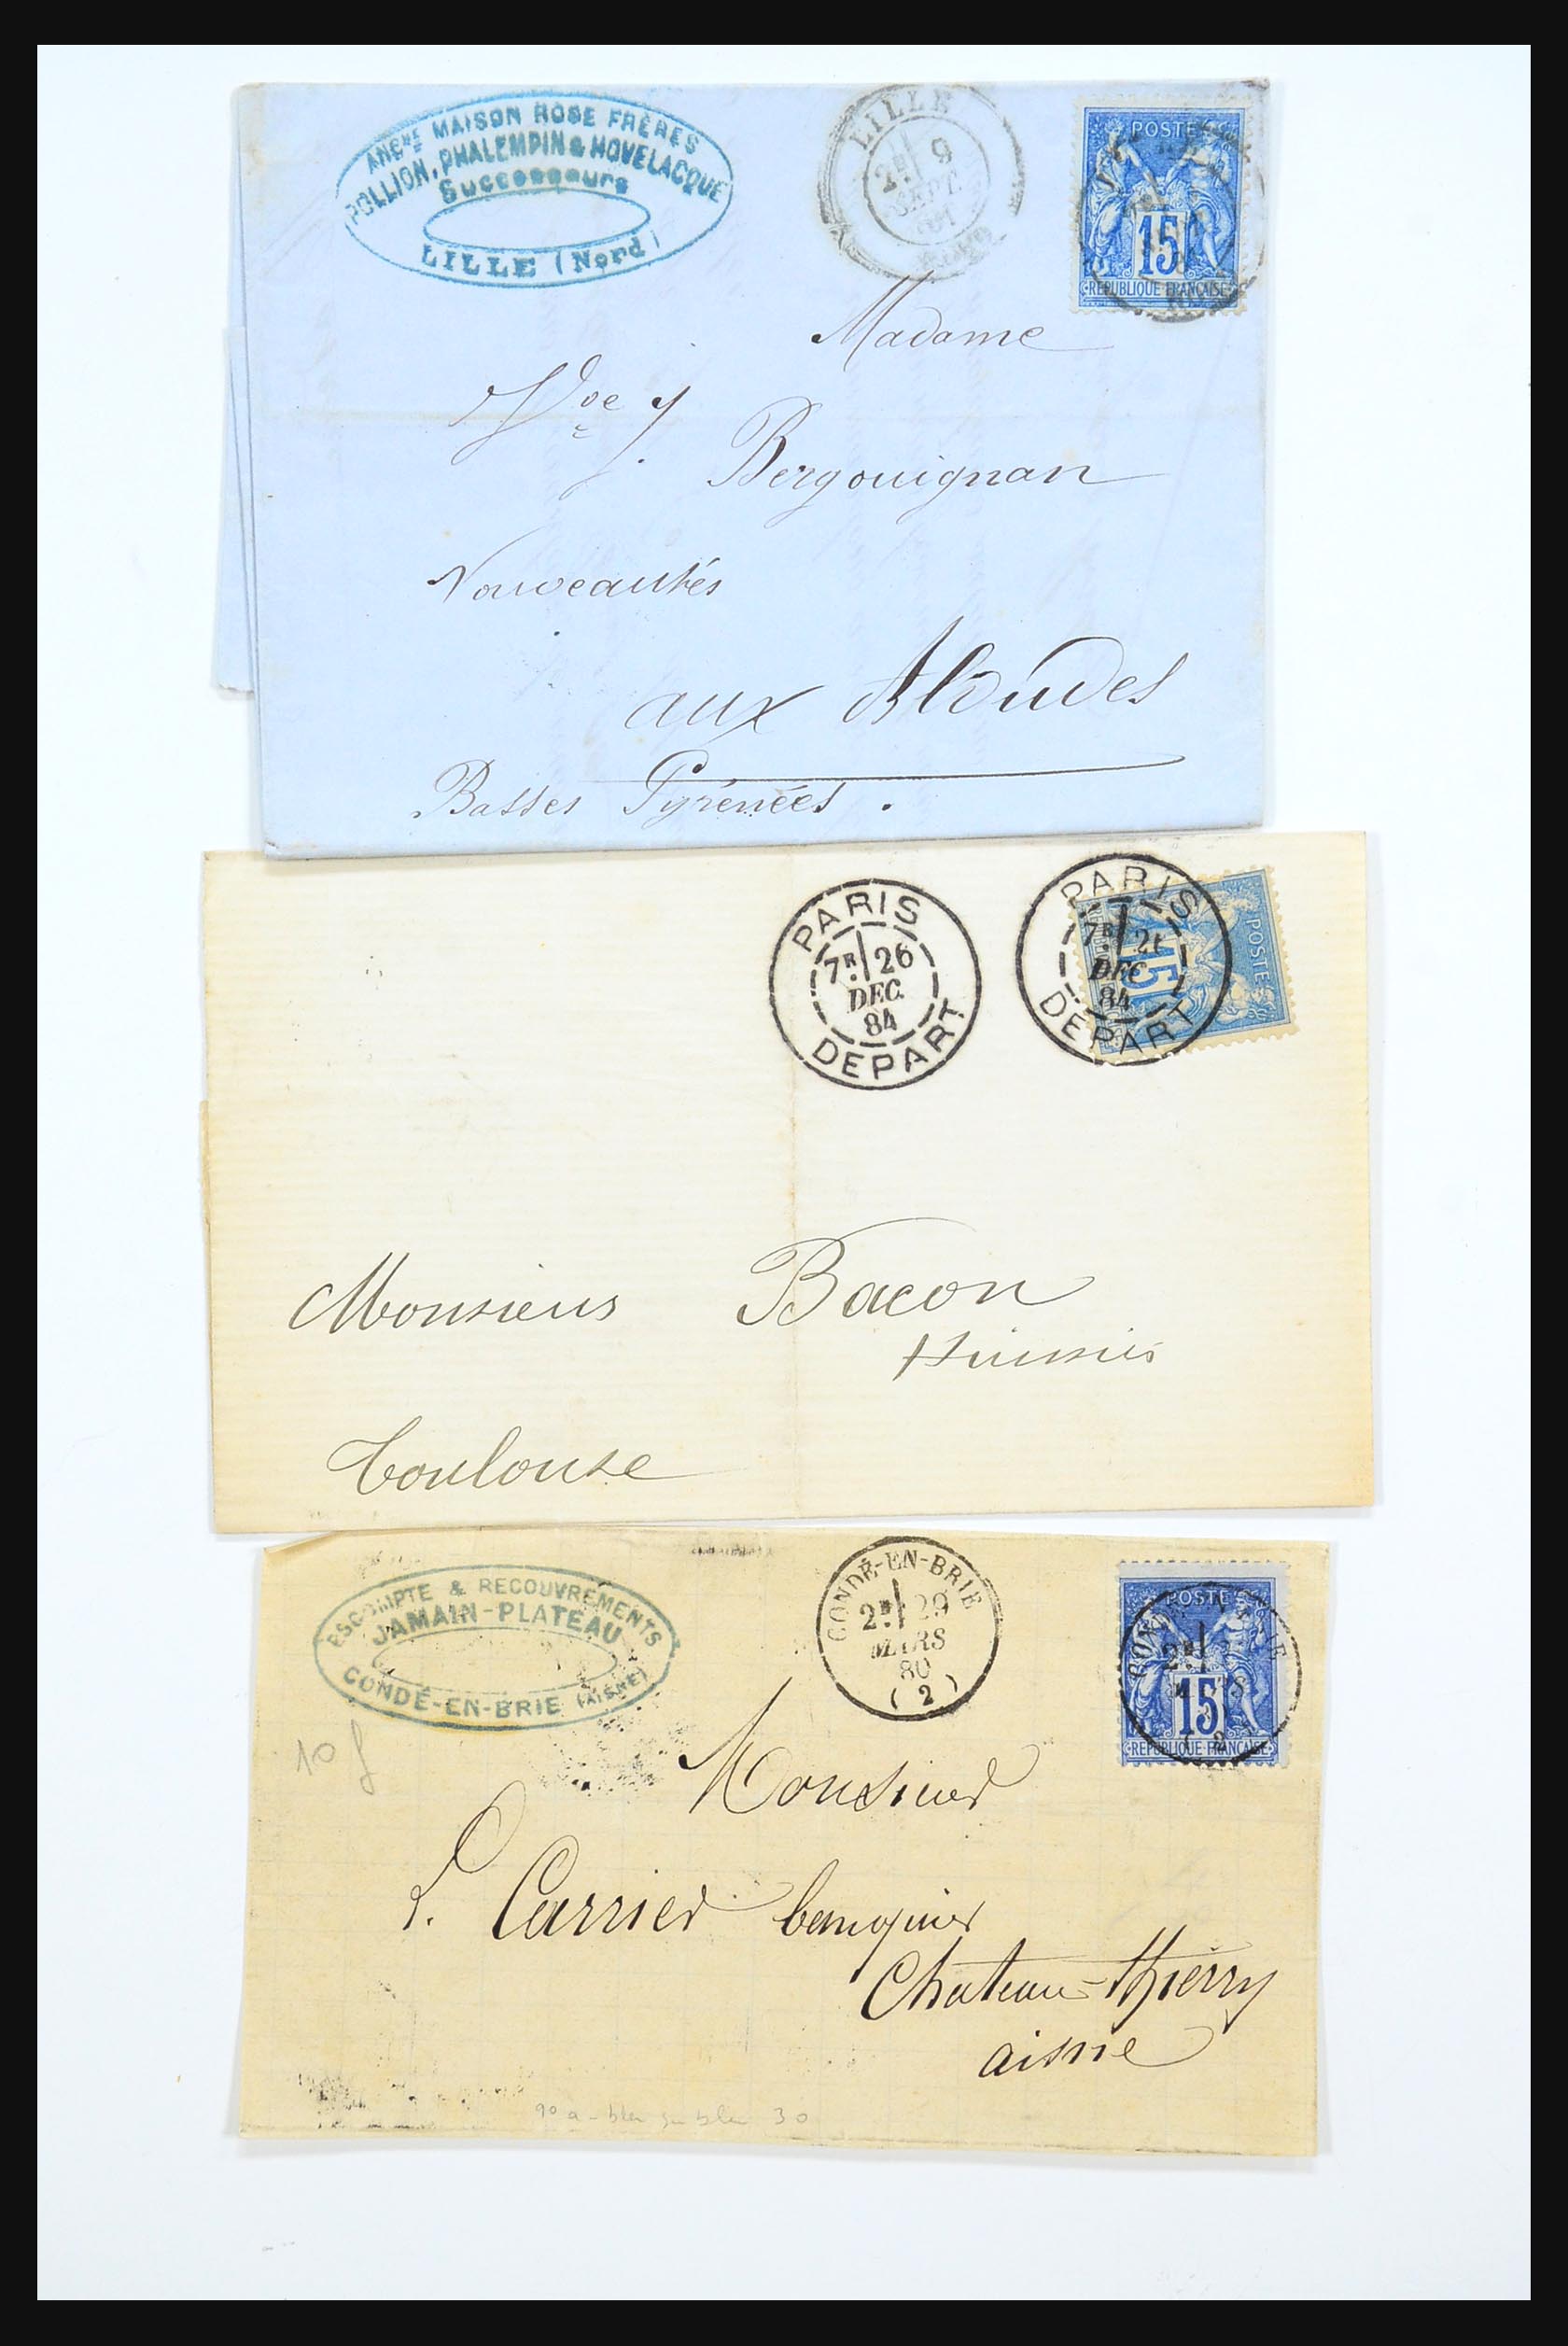 ANCNE MAISON ROSE FRÈRES
POLLION, PHALEMPIN & HOVELACQUE
Successeurs
LILLE (Nord)
LILLE
2E 9
SEPT.
81
POSTE
15
REPUBLIQUE FRANÇAISE
Madame
Vve J. Bergouignan
Nouveautés
aux Aldudes
Basses Pyrénées.
PARIS
7E 26
DEC.
84
DEPART
PARIS
7E 26
DEC.
84
DEPART
POSTE
15
Monsieur Bacon
Huissier
Toulouse
ESCOMPTE & RECOUVREMENTS
JAMAIN-PLATEAU
CONDÉ-EN-BRIE (AISNE)
CONDÉ-EN-BRIE
2E 29
MARS
80
(2)
POSTE
2E
15
2
REPUBLIQUE FRANÇAISE
10 f
Monsieur
L. Carrier banquier
Chateau-Thierry
aisne
90 a - bleu sur bleu 30